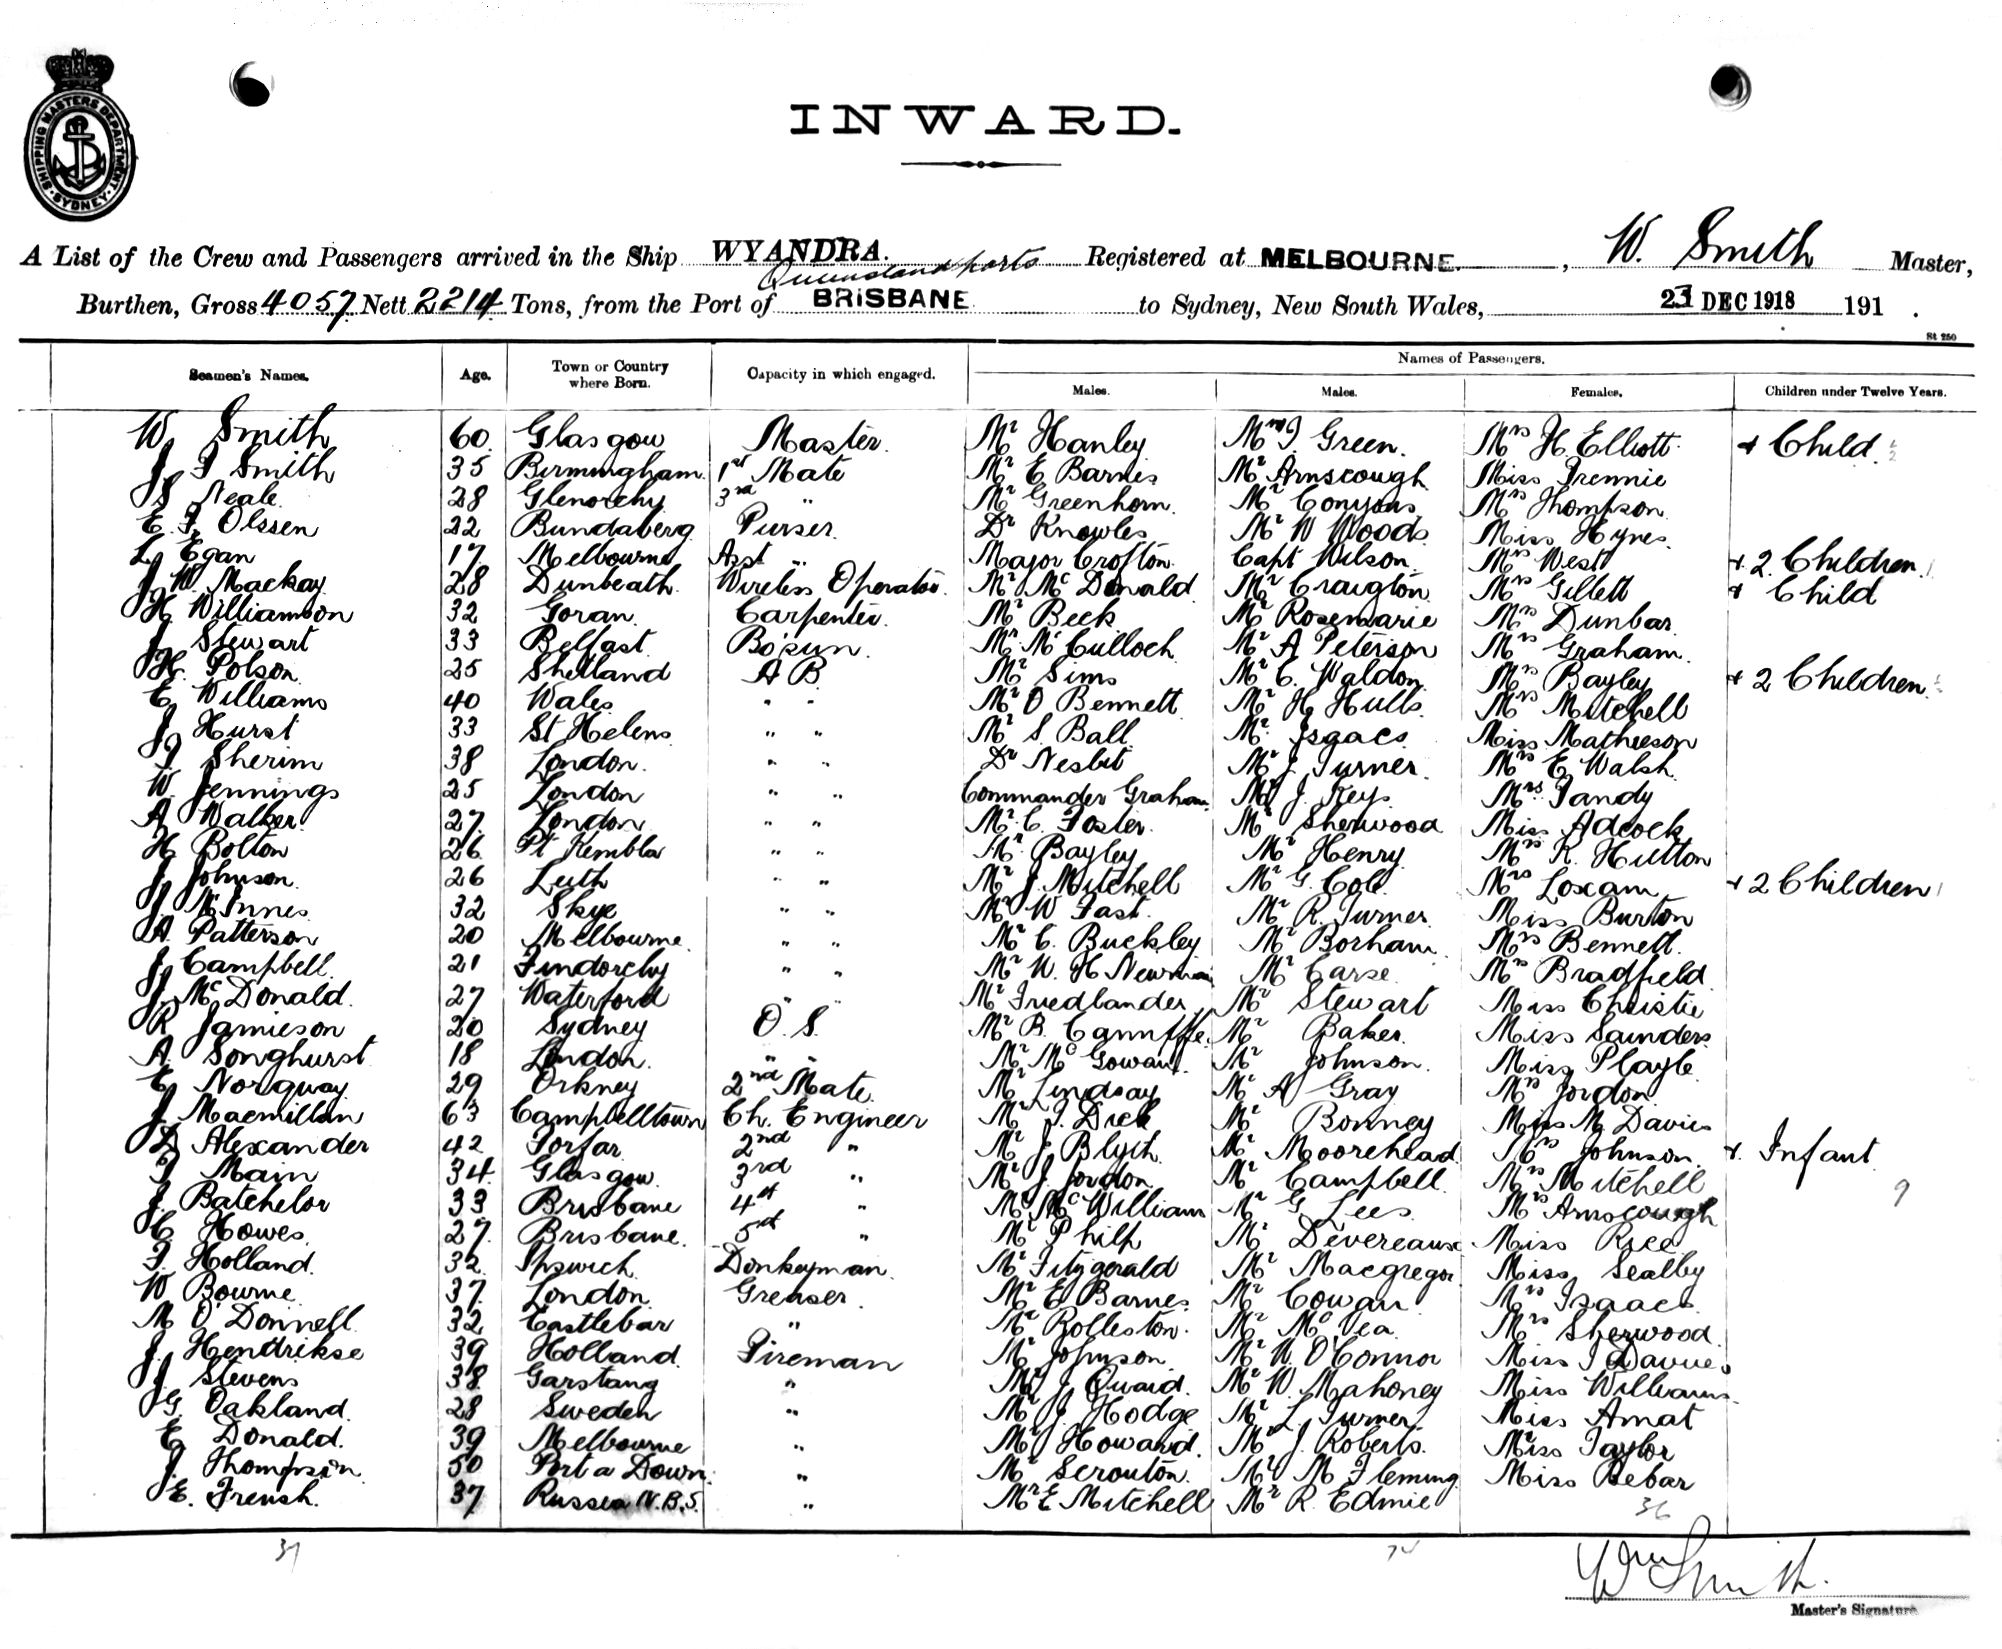 SHIPPING MASTERS DEPARTMENT
SYDNEY
INWARD.
A List of the Crew and Passengers arrived in the Ship WYANDRA. Registered at MELBOURNE, W. Smith Master,
Queensland ports
Burthen, Gross 4057 Nett 2214 Tons, from the Port of BRISBANE to Sydney, New South Wales, 23 DEC 1918 191 .
St 250
Names of Passengers.
Seamen's Names. Age. Town or Country where Born. Capacity in which engaged. Males. Males. Females. Children under Twelve Years.
W Smith 60 Glasgow Master. Mr Hanley Mr J. Green. Mrs H Elliott + Child
J. F Smith 35 Birmingham 1st Mate Mr E Barnes Mr Arnscough Miss Trennie
S Neale 28 Glenorchy 3rd " Mr Greenhorn. Mr Conyous Mrs Thompson
E. F. Olssen 22 Bundaberg Purser. Dr Knowles Mr W Woods Miss Hynes.
L Egan 17 Melbourne Asst " Major Crofton. Capt Wilson. Mrs West + 2 Children
J. W. Mackay 28 Dunbeath Wireless Operator. Mr McDonald Mr Craigton Mrs Gillett + Child
H Williamson 32 Goran. Carpenter. Mr Beck Mr Rosemarie Mrs Dunbar
J. Stewart 33 Belfast. Bo'sun. Mr McCulloch Mr A Peterson Mrs Graham.
H. Polson 25 Shetland A B. Mr Sims Mr C. Waldon Mrs Bayley + 2 Children
E Williams 40 Wales " " Mr O Bennett Mr H Hulls. Mrs Mitchell
J. Hurst 33 St Helens " " Mr S. Ball Mr. Isaacs. Miss Matheeson
J Sherim 38 London. " " Dr Nesbit Mr J Turner. Mrs E Walsh
W. Jennings 25 London " " Commander Graham Mr J. Keys Mrs. Tandy
A Walker 27 London " " Mr. C. Foster. Mr Sherwood Miss Adcock
H Bolton 26 Pt Kembla " " Mr Bayley Mr Henry Mrs R. Hutton
J. Johnson 26 Leith " " Mr J. Mitchell Mr G. Cole. Mrs Loxam + 2 Children
J. McInnes 32 Skye " " Mr W Fast. Mr R. Turner Miss Burton
A. Patterson 20 Melbourne. " " Mr C. Buckley Mr Borham Mrs Bennett.
J. Campbell 21 Findorchy " " Mr W. H Newman Mr Carse Mrs Bradfield
J. McDonald. 27 Waterford " " Mr Friedlander Mr Stewart Miss Christie
R Jamieson 20 Sydney O. S. Mr B. Canniffe. Mr Baker. Miss Saunders
A Songhurst 18 London. " " Mr McGowan. Mr Johnson. Miss Playle
E Norquay 29 Orkney 2nd Mate Mr Lindsay Mr A Gray Mrs Jordon
J. Macmillan 63 Campbelltown Ch. Engineer Mr J. Dick Mr Bonney Miss M Davies
D Alexander 42 Forfar 2nd " Mr J Blyth. Mr Moorehead Mrs Johnson + Infant
J Main 34 Glasgow 3rd " Mr J. Jordon Mr Campbell Mrs Mitchell
J. Batchelor 33 Brisbane 4th " Mr McWilliam Mr G Lees Mrs Arnscough 9
C Howes. 27 Brisbane. 5th " Mr Philp Mr Devereaux Miss Rice
J. Holland. 32 Ipswich Donkeyman Mr Fitzgerald Mr Macgregor Miss Sealby
W Bourne 37 London Greaser. Mr E Barnes Mr Cowan Mrs Isaacs
M O'Donnell 32 Castlebar " Mr Rolleston. Mr McVea Mrs Sherwood
J. Hendrikse 39 Holland. Fireman Mr Johnson Mr W. O'Connor Miss J Davies
J. Stevens 38 Garstang " Mr J. Quaid. Mr W. Mahoney Miss Williams
G. Oakland 28 Sweden " Mr J. Hodge Mr L. Turner Miss Amat
E Donald. 39 Melbourne " Mr J Howard. Mr J. Roberts. Miss Taylor
J. Thompson 50 Port a Down. " Mr Scrouton. Mr M Fleming Miss Bebar
E. Frensh. 37 Russia N.B.S. " Mr E Mitchell Mr R. Edmie 36
37 74
Wm Smith.
Master's Signature